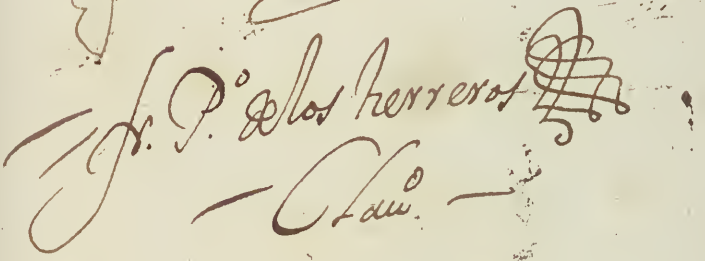 fr. P.º de los herreros
Clauº.